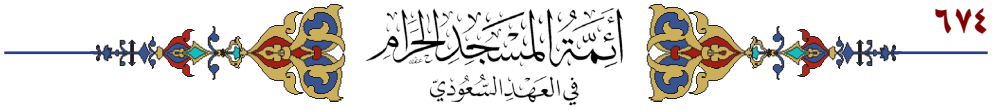 ٦٧٤
أَئِمَّةُ المَسْجِدِ الحَرَامِ
فِي العَهْدِ السُّعُودِيّ